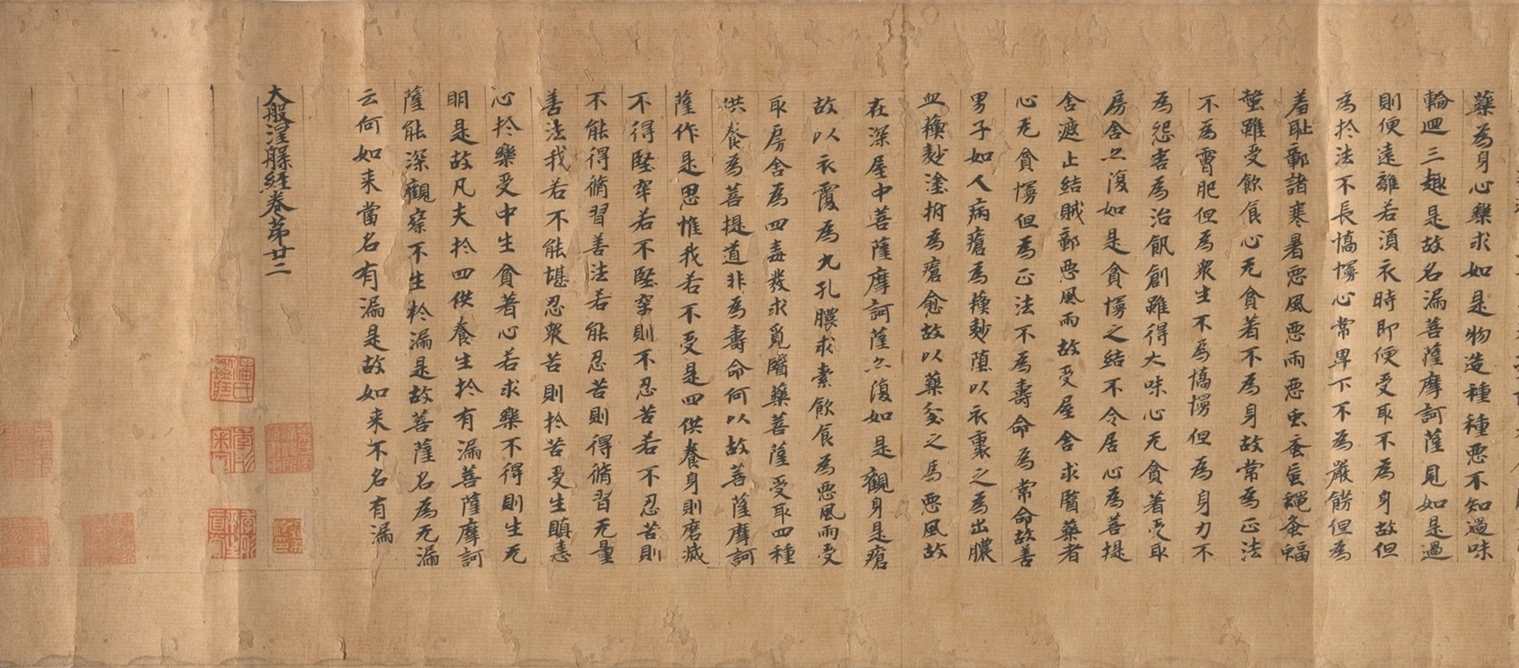 藥為身心樂求如是物造種種悪不知過味
輪迴三趣是故名漏菩薩摩訶薩見如是過
則便遠離若湏衣時即便受取不為身故但
為於法不長憍慢心常卑下不為嚴飾但為
羞恥鄣諸寒暑悪風悪雨悪虫蚤虱蠅蚤蝮
螫雖受飲食心无貪著不為身故常為正法
不為膚肥但為衆生不為憍慢但為身力不
為怨害為治飢創雖得大味心无貪著受取
房舍亦復如是貪慢之結不令居心為菩提
舍遮止結賊鄣悪風雨故受屋舍求醫藥者
心无貪慢但為正法不為壽命為常命故善
男子如人病瘡為蘓麨塗以衣裹之為出膿
血蘓麨塗拊為瘡愈故以藥坌之為悪風故
在深屋中菩薩摩訶薩亦復如是觀身是瘡
故以衣覆為九孔膿求索飲食為悪風雨受
取房舍為四毒發求覓醫藥菩薩受取四種
供養為菩提道非為壽命何以故菩薩摩訶
薩作是思惟我若不受是四供養身則磨滅
不得堅牢若不堅牢則不忍苦若不忍苦則
不能得脩習善法若能忍苦則得脩習无量
善法我若不能堪忍衆苦則於苦受生瞋恚
心於樂受中生貪著心若求樂不得則生无
明是故凡夫於四供養生於有漏菩薩摩訶
薩能深觀察不生於漏是故菩薩名為无漏
云何如来當名有漏是故如来不名有漏
大般涅槃經卷第廿二